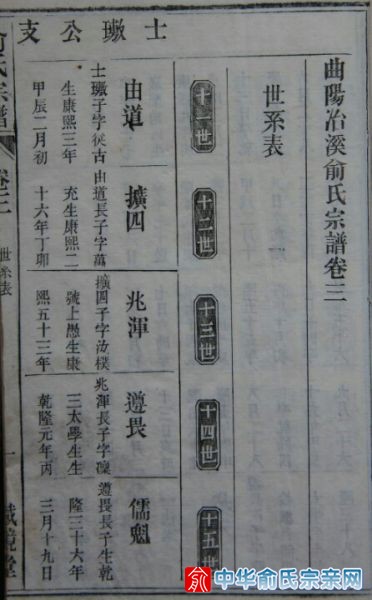 士璥公支
曲陽冶溪俞氏宗譜卷三
世系表
十一世
十二世
十三世
十四世
十五世
由道
士璥子字從古
生康熙三年
甲辰二月初
擴四
由道長子字萬
充生康熙二
十六年丁卯
兆渾
擴四子字汝樸
號上愚生康
熙五十三年
遵畏
兆渾長子字凜
三太學生生
乾隆元年丙
儒魁
遵畏長子生乾
隆三十六年
三月十九日
俞氏宗譜
卷三
世系表
一
鏡堂
俞 中华俞氏宗亲网